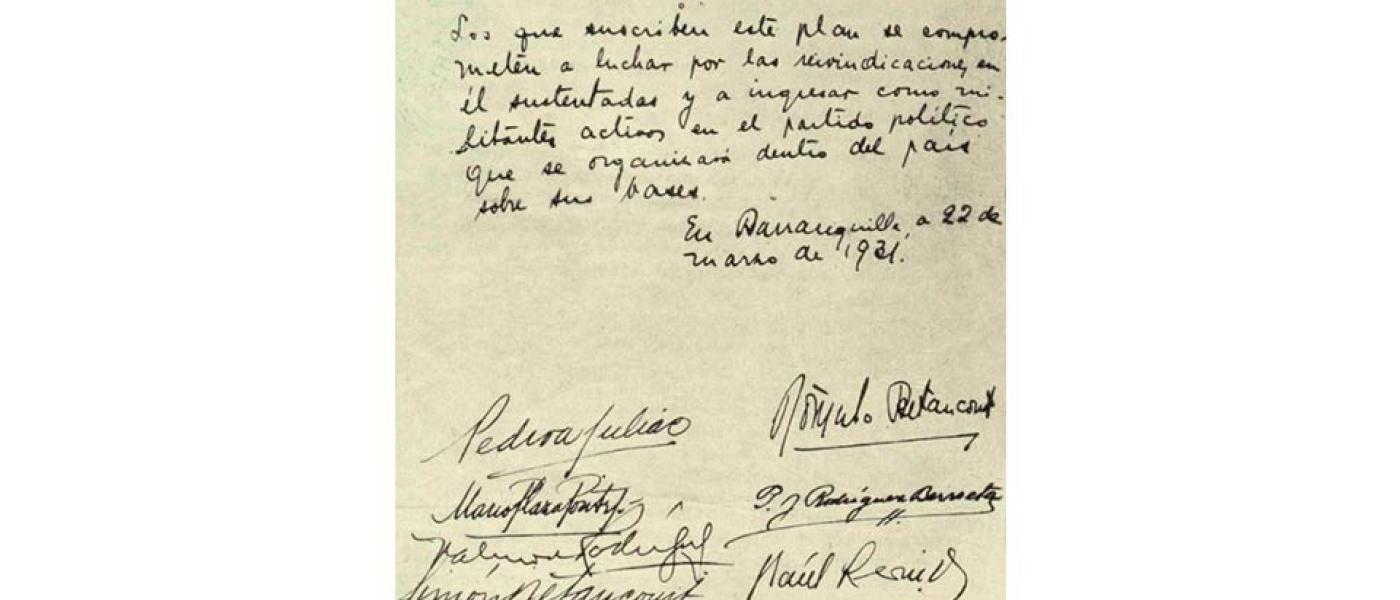 Los que suscriben este plan se compro-
meten a luchar por las reivindicaciones en
él sustentadas y a ingresar como mi-
litantes activos en el partido político
que se organizará dentro del país
sobre sus bases.
En Barranquilla, a 22 de
marzo de 1931.
Pedro A Juliac
Rómulo Betancourt
Mario Plaza Ponte
P. J Rodríguez Berroeta
Valmore Rodríguez
Raúl Leoni
Simón Betancourt